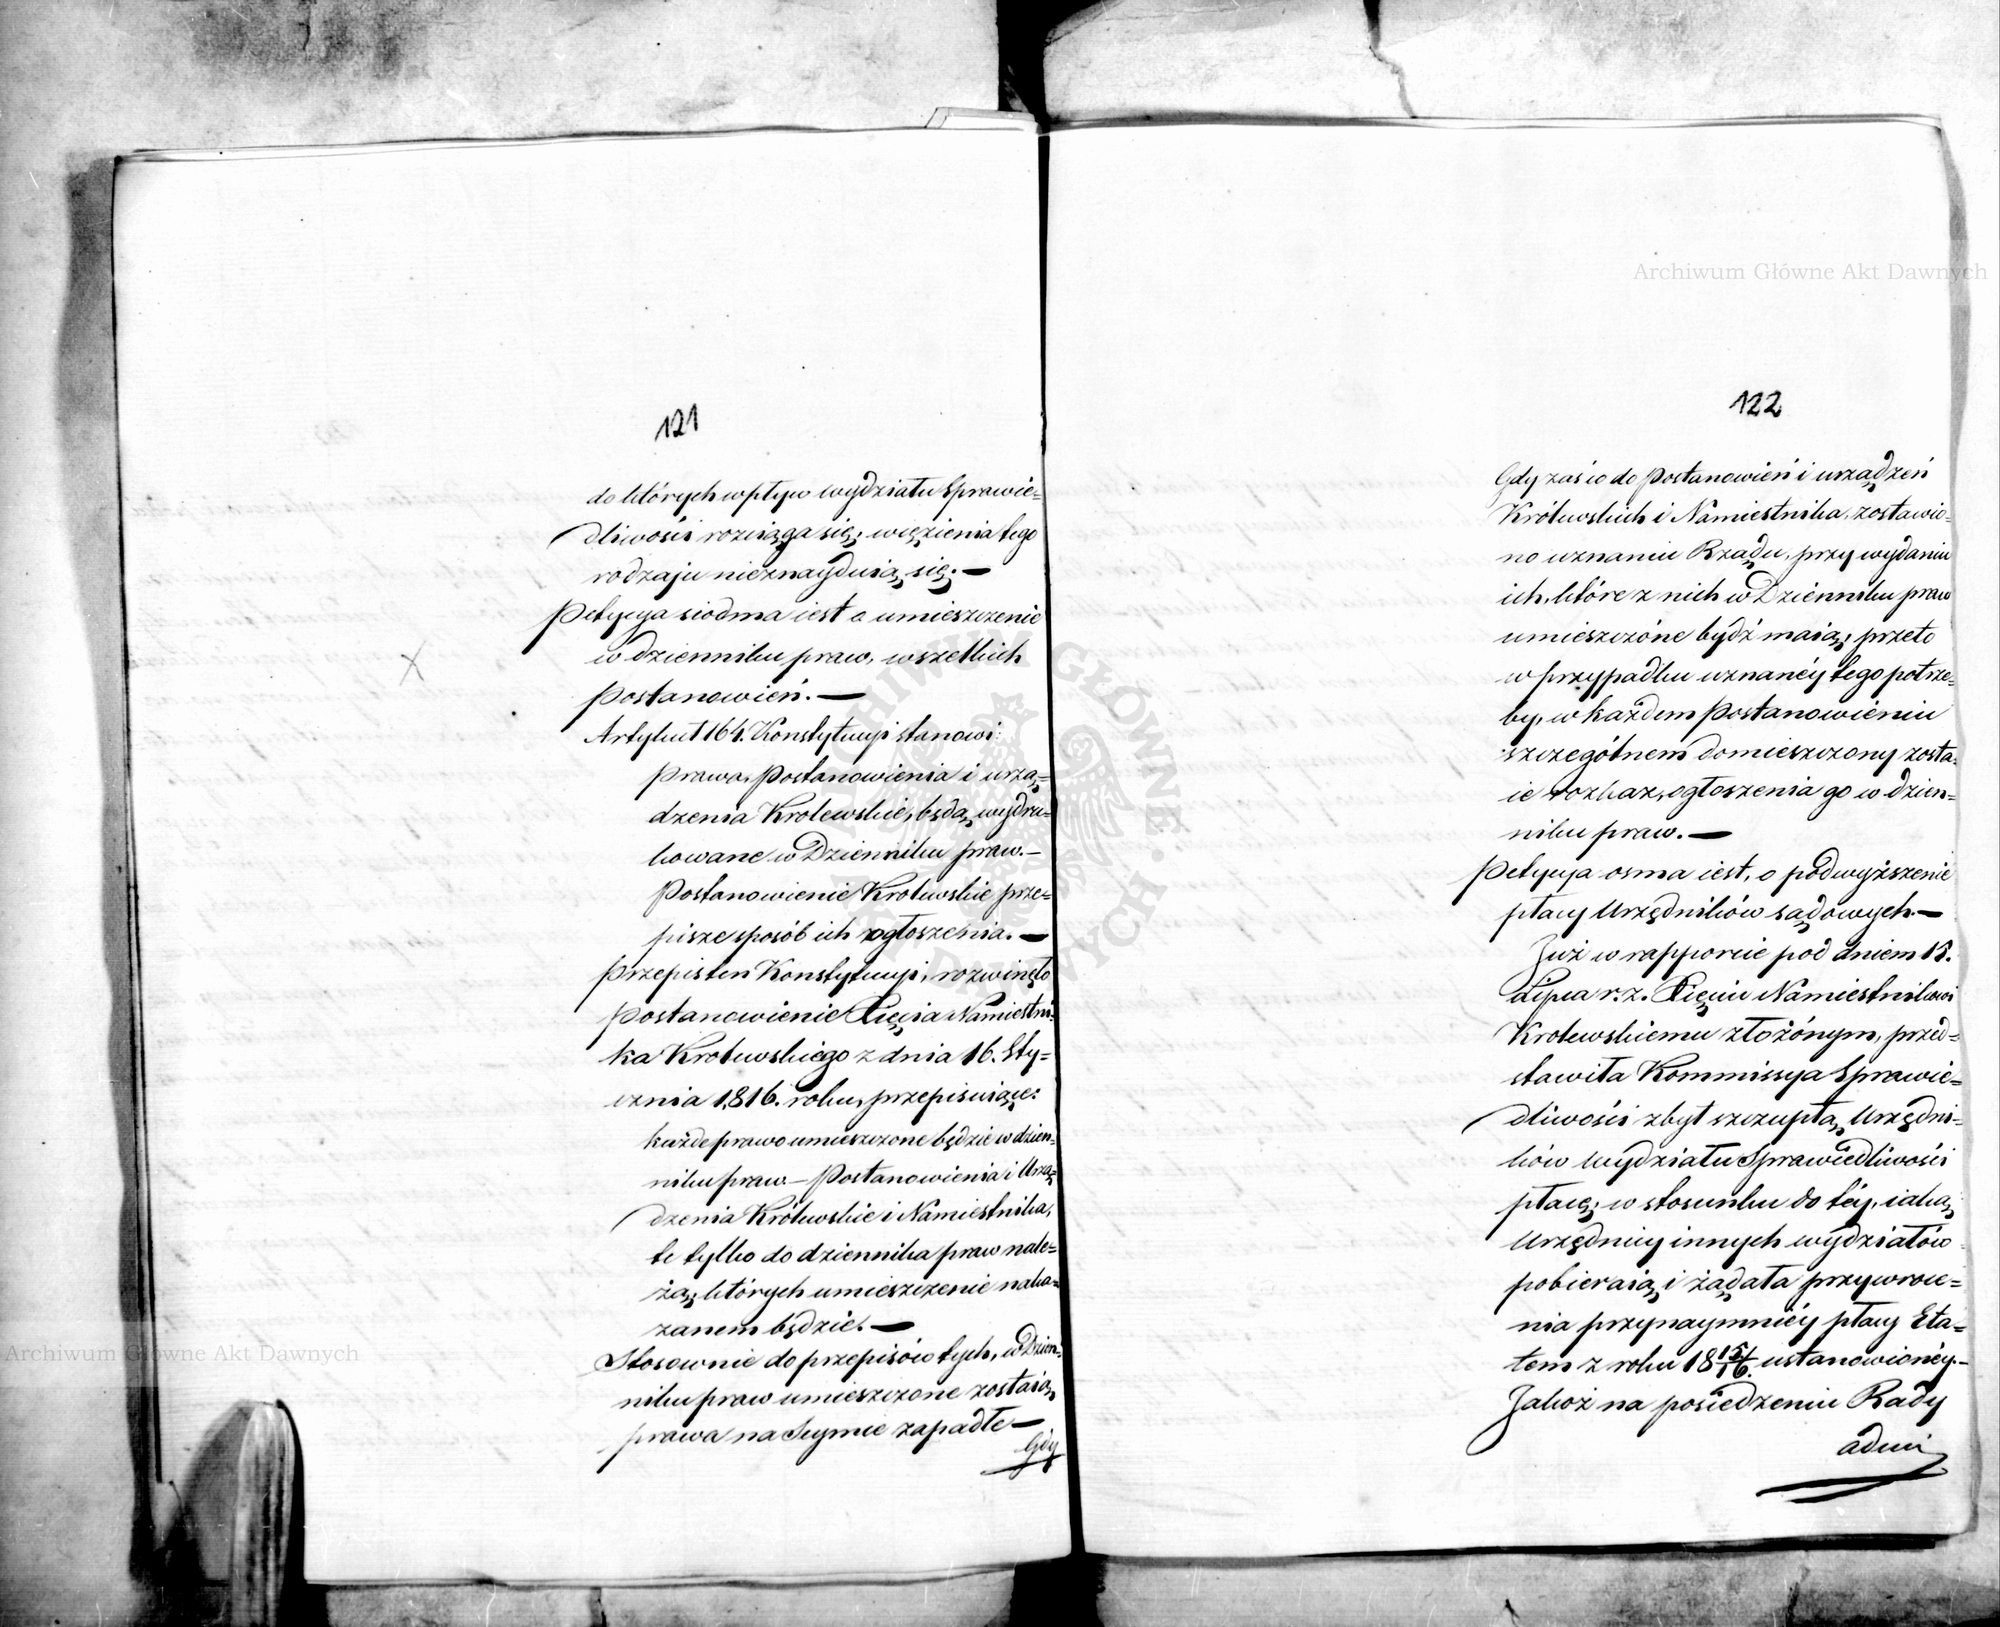 121
do których wpływ wydziału Sprawie=
dliwości rozciąga się; więzienia tego
rodzaju nieznayduią się. —
Petycya siódma iest o umieszczenie
w dzienniku praw, wszelkich
Postanowień. —
Artykuł 164. Konstytucyi stanowi:
Prawa, Postanowienia i urzą=
dzenia Krolewskie, będą wydru=
kowane w Dzienniku praw. —
Postanowienie Krolewskie prze=
pisze sposób ich ogłoszenia. —
Przepis ten Konstytucyi, rozwinęło
Postanowienie Xięcia Namiestni=
ka Krolewskiego z dnia 16. Sty=
cznia 1816. roku, przepisuiąc:
każde prawo umieszczone będzie w dzien=
niku praw — Postanowienia i Urzą=
dzenia Królewskie i Namiestnika,
te tylko do dziennika praw nale=
żą; których umieszczenie naka=
zanem będzie. —
Stosownie do przepisów tych, w Dzien=
niku praw umieszczone zostaią,
prawa na Seymie zapadłe —
Gdy
122
Gdy zaś co do Postanowień i urządzeń
Królewskich i Namiestnika, zostawio=
no uznaniu Rządu, przy wydaniu
ich, które z nich w Dzienniku praw
umieszczóne bydź maią; przeto
w przypadku uznanéy tego potrze=
by, w każdem Postanowieniu
szczególnem domieszczony zosta=
ie rozkaz, ogłoszenia go w dzien=
niku praw. —
Petycya osma iest, o podwyższenie
płacy Urzędników sądowych. —
Już w rapporcie pod dniem 15.
Lipca r. z. Xięciu Namiestnikowi
Krolewskiemu złożónym, przed=
stawiła Kommissya Sprawie=
dliwości zbyt szczupłą, Urzędni=
ków Wydziału Sprawiedliwości
płacę; w stosunku do téy, iaką
Urzędnicy innych wydziałów
pobieraią; i żądała przywróce=
nia przynaymniéy płacy Eta=
tem z roku 18 15/16. ustanowionéy. —
Jakoż na posiedzeniu Rady
admi
Archiwum Główne Akt Dawnych
Archiwum Główne Akt Dawnych
ARCHIWUM GŁÓWNE AKT DAWNYCH